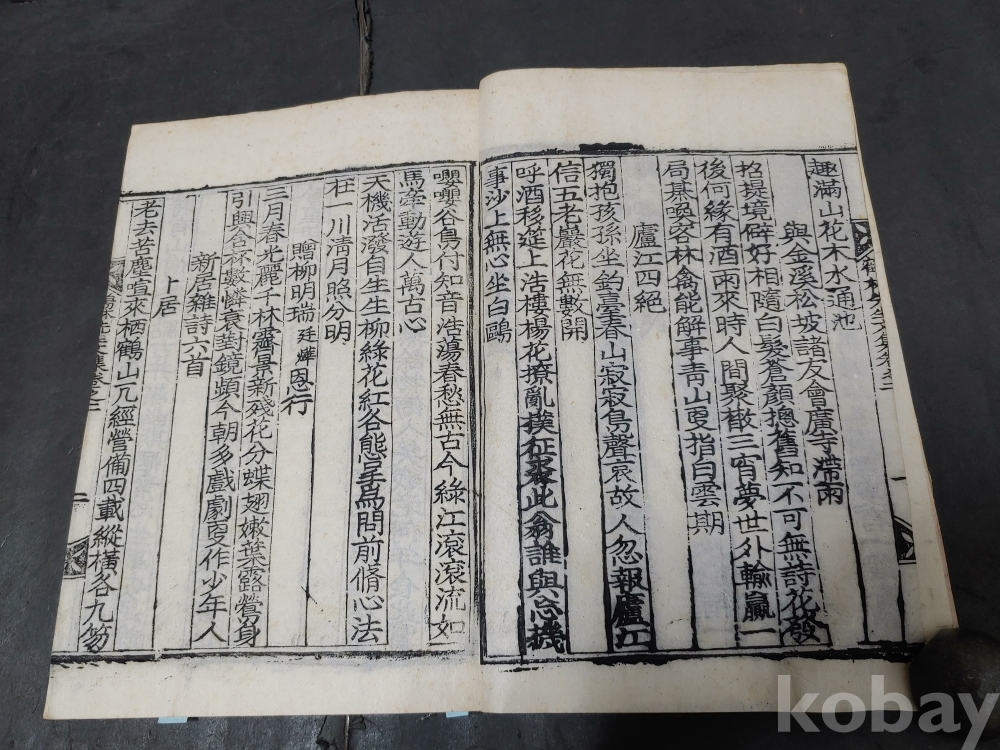 趣滿山花木水通池
與金溪松坡諸友會廣寺滯雨
招提境僻好相隨白髮蒼顏摠舊知不可無詩花發
後何緣有酒雨來時人間聚散三宵夢世外輸贏一
局碁喚客林禽能解事靑山更指白雲期
廬江四絶
獨抱孩孫坐釣臺春山寂寂鳥聲哀故人忽報廬江
信五老巖花無數開
呼酒移筵上浩樓楊花撩亂撲征裘此翁誰與忘機
事沙上無心坐白鷗
嚶嚶谷鳥付知音浩蕩春愁無古今綠江滾滾流如
馬牽動遊人萬古心
天機活潑自生生柳綠花紅谷態呈爲問前脩心法
在一川淸月照分明
贈柳明瑞廷燁恩行
三月春光麗千林霽景新殘花分蝶翅嫩葉露鶯身
引興含杯數憐衰對鏡頻今朝多戲劇更作少年人
新居雜詩六首
卜居
老去苦塵喧來栖鶴山亢經營備四載縱橫各九笏
kobay